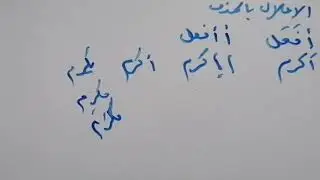 الاعلال بالحذف
أفعل أأفعل
أكرم أأكرم أكرم نكرم
مكرم
مكرم